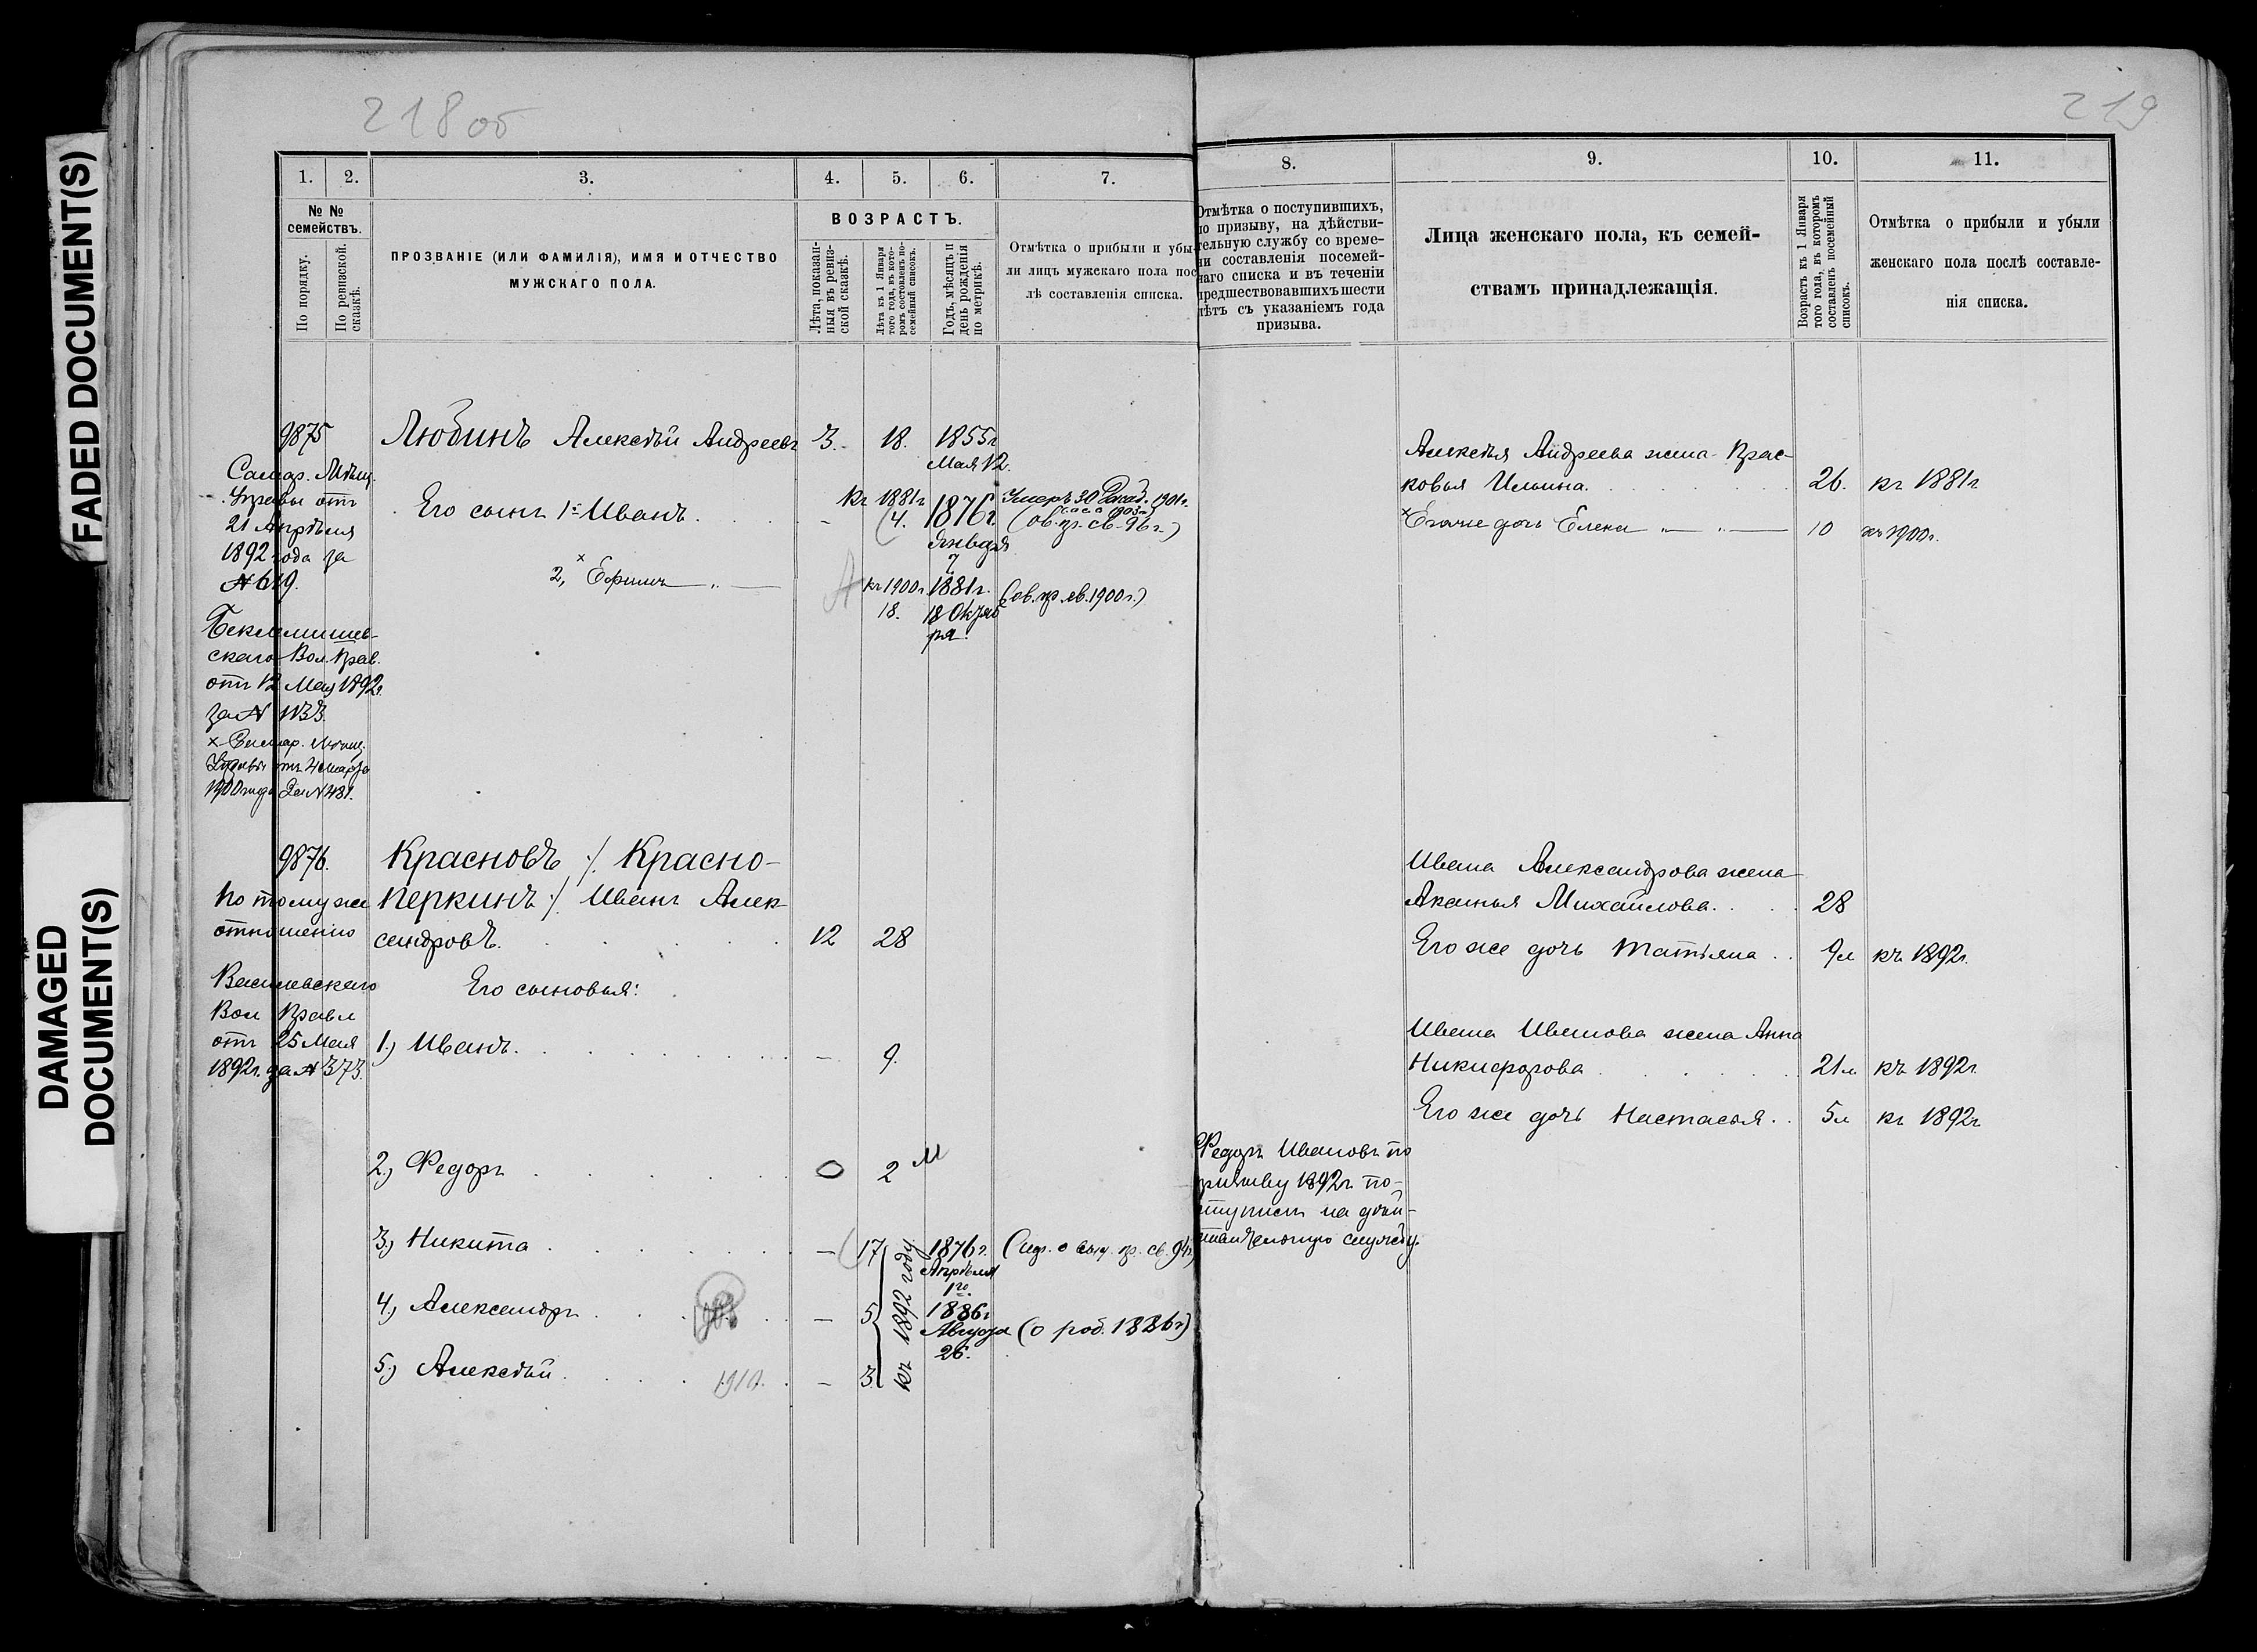 FADED DOCUMENT(S)
DAMAGED
DOCUMENT(S)
218 об
1. 2. 3. 4. 5. 6. 7.
№ №
семействъ.
По порядку.
По ревизской
сказкѣ.
ПРОЗВАНІЕ (ИЛИ ФАМИЛІЯ), ИМЯ И ОТЧЕСТВО
МУЖСКАГО ПОЛА.
ВОЗРАСТЪ.
Лѣта, показан-
ныя въ ревиз-
ской сказкѣ.
Лѣта къ 1 Января
того года, въ кото-
ромъ составленъ по-
семейный списокъ.
Годъ, мѣсяцъ и
день рожденія
по метрикѣ.
Отмѣтка о прибыли и убы-
ли лицъ мужскаго пола пос-
лѣ составленія списка.
9875 Любинъ Алексѣй Андреевъ 3. 18. 1855г
Мая 12.
Самар. Мѣщ.
Управы отъ
21 Апрѣля
1892 года за
№ 619.
Его сынъ 1й Иванъ. – къ 1881г 4. 1876г. Января 7
Умеръ 30 Декаб. 1901г.
(ов. пр. св. 96 г.)
2, × Ефимъ — „ — къ 1900г. 18. 1881г. 18 Октяб
ря.
(ов. пр. яв. 1900 г.)
Беклемишев-
скаго Вол. Прав.
отъ 12 Мая 1892г.
за № 1133.
× Самар. Мѣщ.
Управы отъ 4 Марта
1900 года за № 481.
9876. Красновъ ./. Красно-
перкинъ ./. Иванъ Алек-
сандровъ. 12 28
По тому же
отношенію
Васильевскаго
Вол Правл
отъ 25 Мая
1892г. за № 373.
Его сыновья:
1.) Иванъ. – 9.
2.) Федоръ 0 2 м
3.) Никита – 17 1876г. Апрѣля 1го. (пр. св. 94г)
4.) Александръ – 5 1886г Августа 26. (о род. 1886г)
5.) Алексѣй. 1910. – 3.
къ 1892 году
219
8. 9. 10. 11.
Отмѣтка о поступившихъ,
по призыву, на дѣйстви-
тельную службу со време-
ни составленія посемей-
наго списка и въ теченіи
предшествовавшихъ шести
лѣтъ съ указаніемъ года
призыва.
Лица женскаго пола, къ семей-
ствамъ принадлежащія.
Возрастъ къ 1 Января
того года, въ которомъ
составленъ посемейный
списокъ.
Отмѣтка о прибыли и убыли
женскаго пола послѣ составле-
нія списка.
Алексѣя Андреева жена Прас-
ковья Ильина. 26. къ 1881г
× Его же дочь Елена — „ — „ — 10 къ 1900г.
Ивана Александрова жена
Акилина Михайлова. 28
Его же дочь Татьяна . . 9л къ 1892г.
Ивана Иванова жена Анна
Никифорова 21л. къ 1892г.
Его же дочь Настасья . . 5л къ 1892г
Федоръ Ивановъ по
призыву 1892г. по-
ступилъ на дѣй-
ствительную службу.